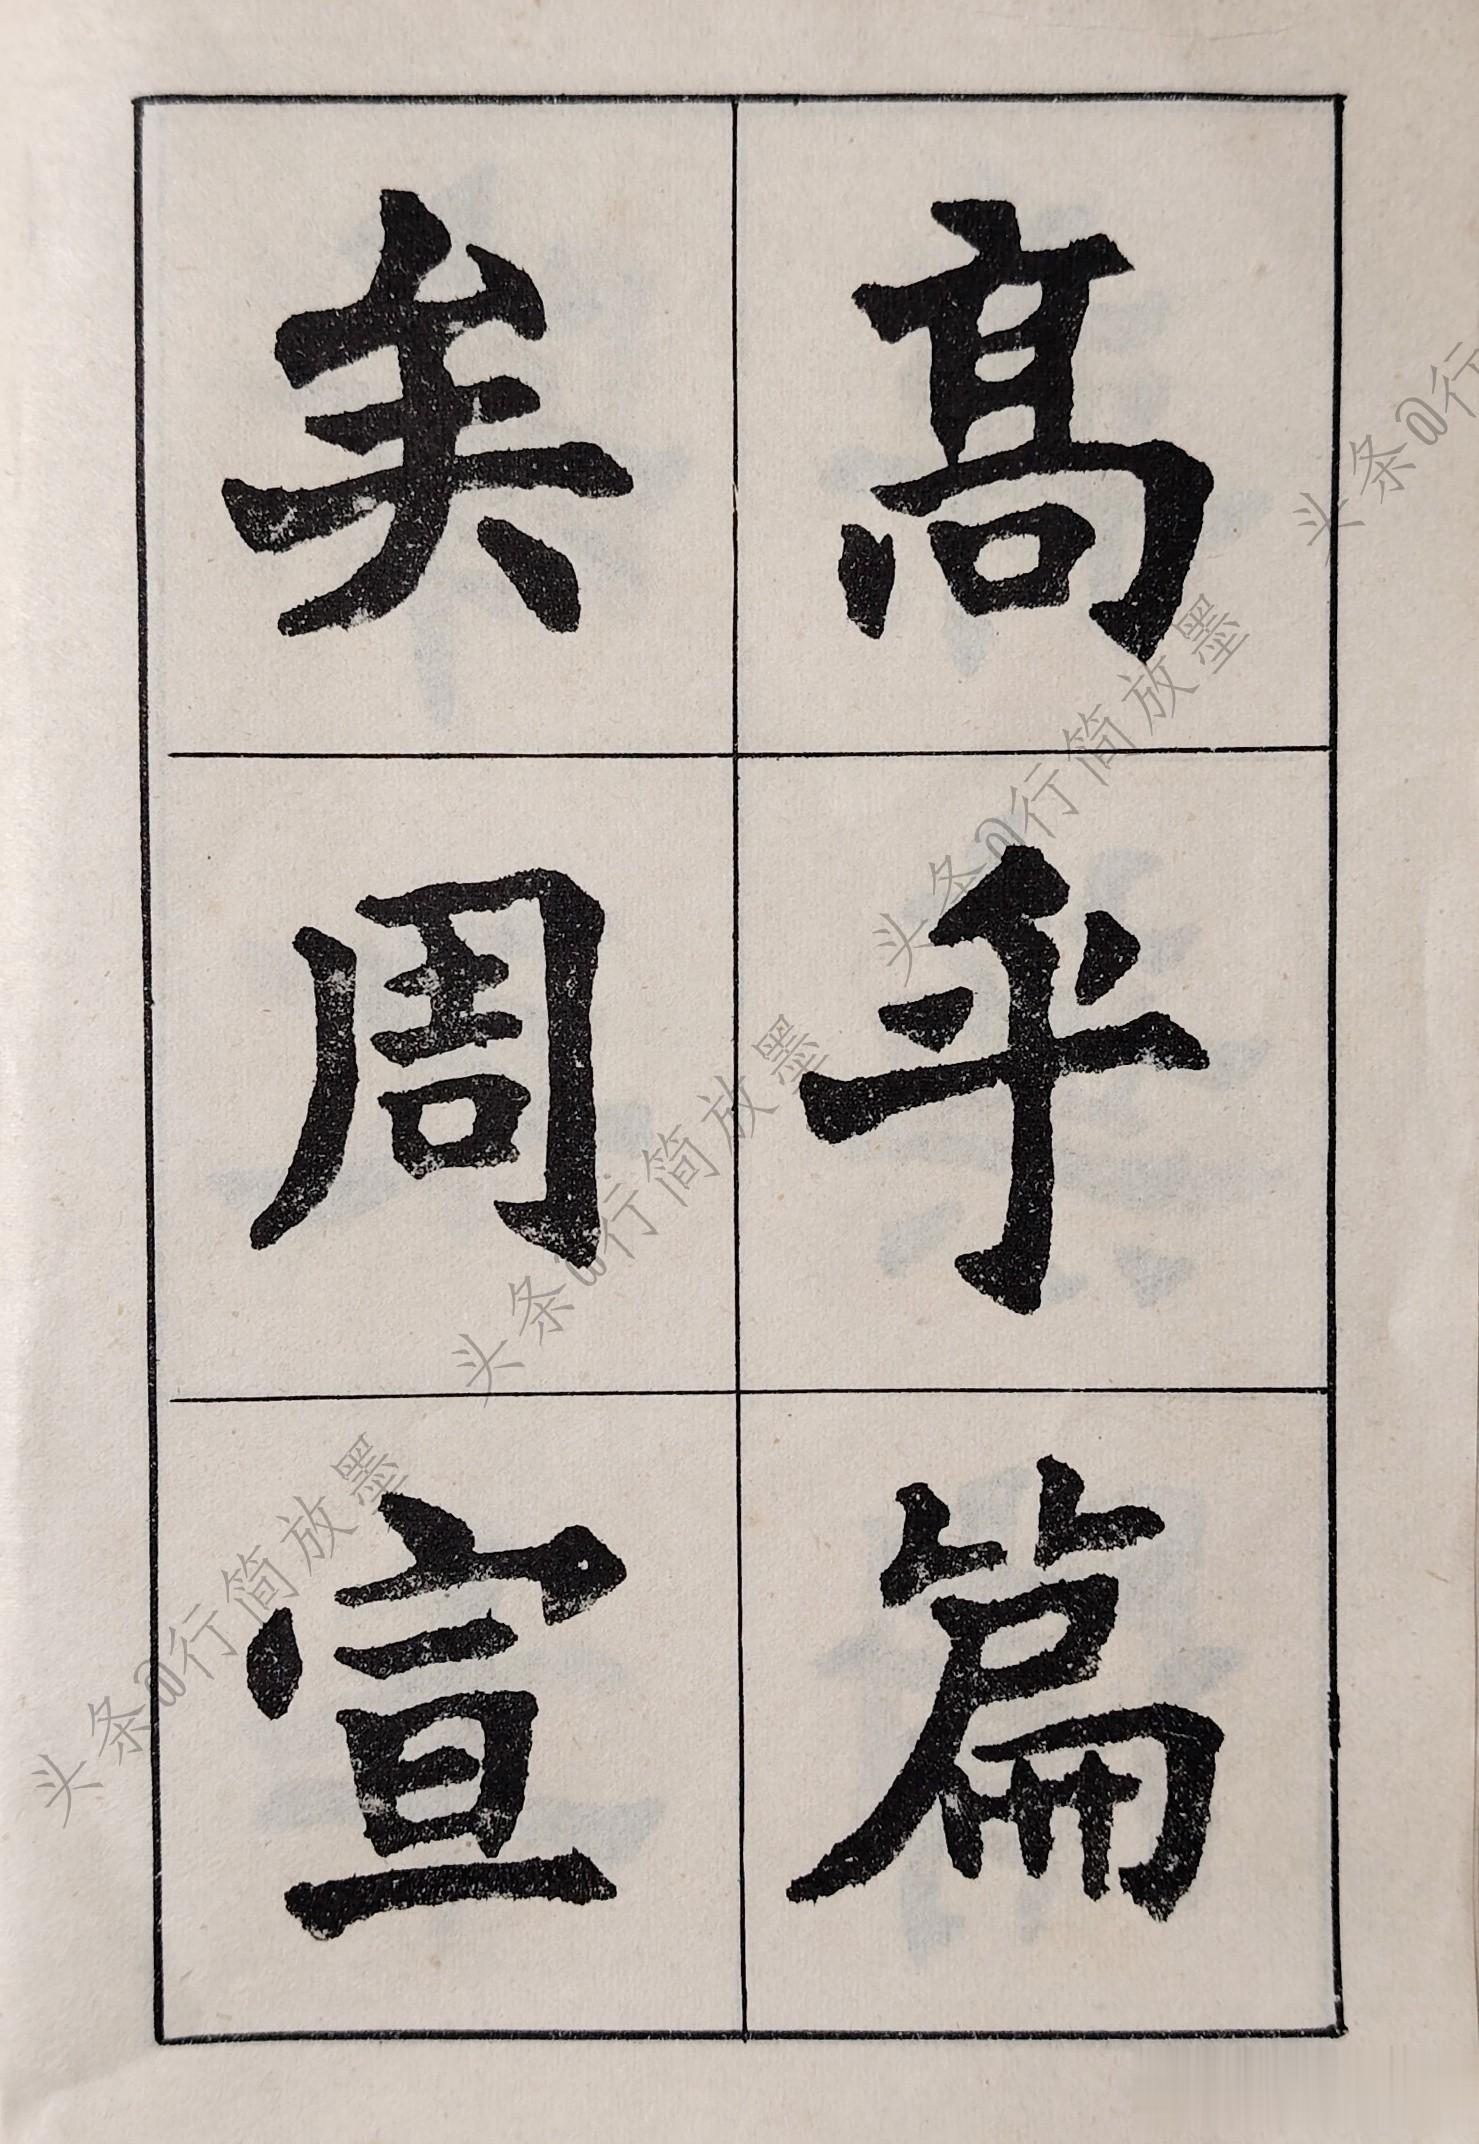 高乎篇
矣周宣
头条@行简放墨
头条@行简放墨
头条@行简放墨
头条@行